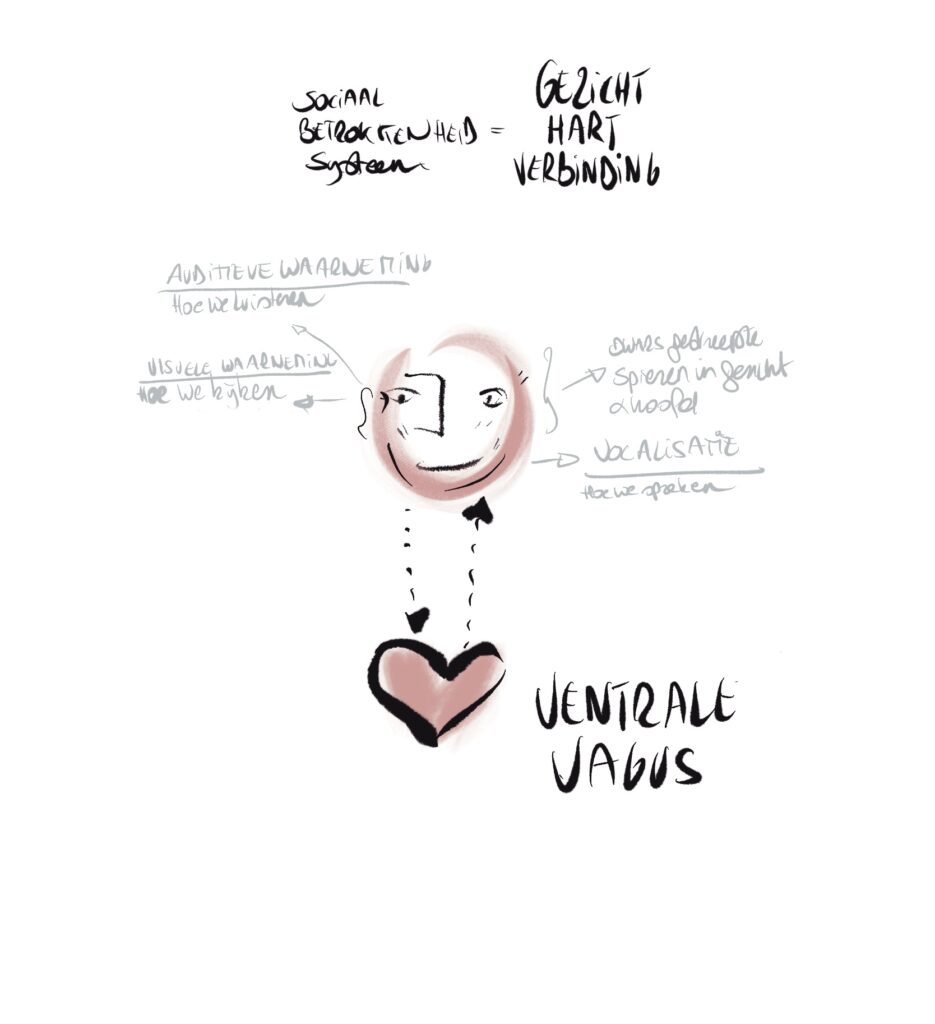 SOCIAAL
BETROKKENHEID =
Systeem
GEZICHT
HART
VERBINDING
AUDITIEVE WAARNEMING
Hoe we luisteren
VISUELE WAARNEMING
Hoe we kijken
Dwars gestreepte
Spieren in gezicht
& hoofd
VOCALISATIE
Hoe we spreken
VENTRALE
VAGUS